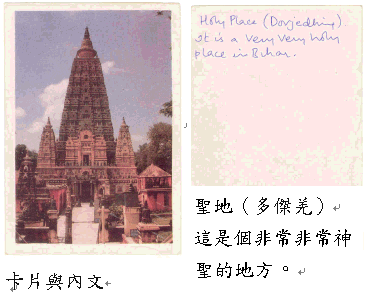 Holy Place (Dorjedhing)
It is a very very holy
place in Bihar.
聖地（多傑羌）
這是個非常非常神
聖的地方。
卡片與內文